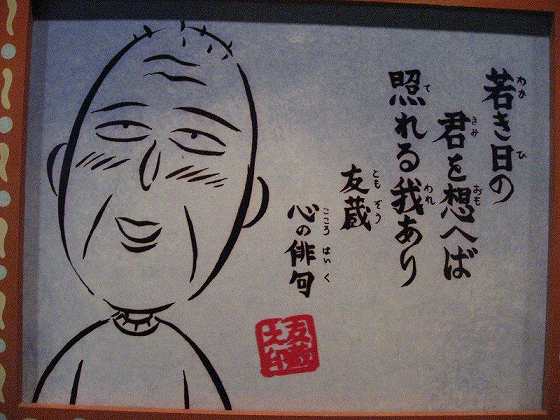 若き日の
君を想へば
照れる我あり
友蔵
心の俳句